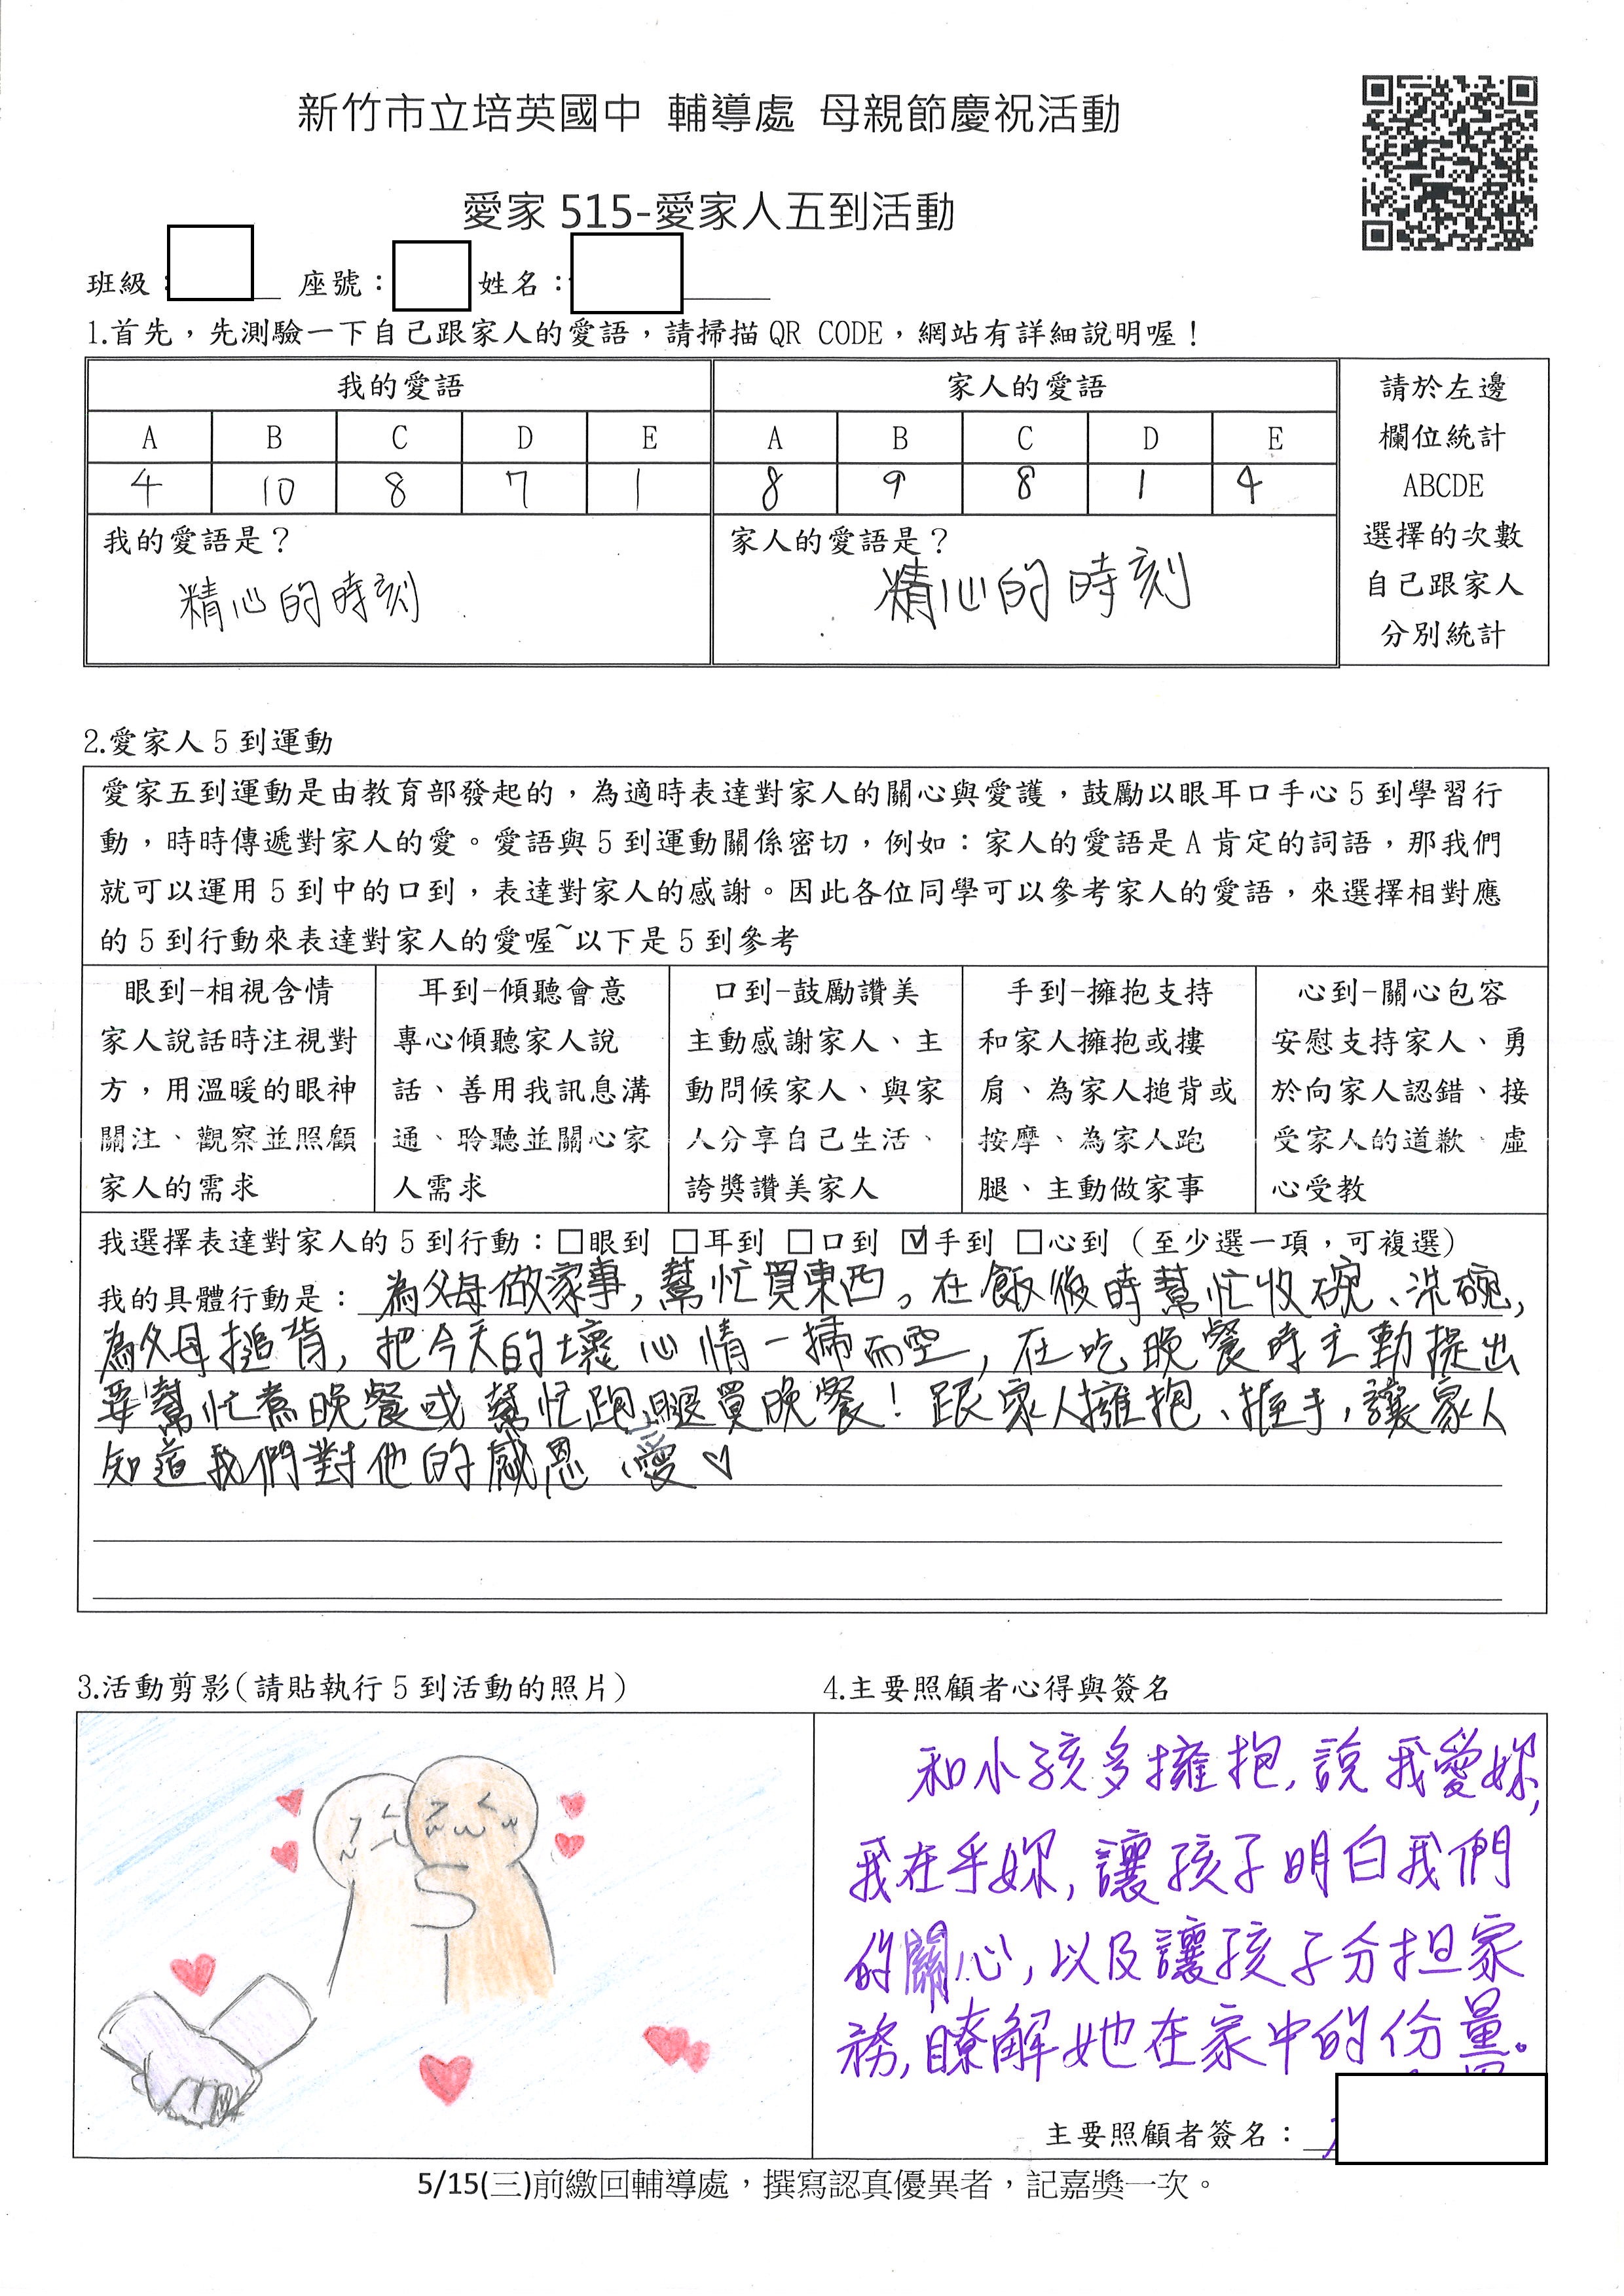 新竹市立培英國中 輔導處 母親節慶祝活動
愛家 515-愛家人五到活動
班級： 座號： 姓名：
1.首先，先測驗一下自己跟家人的愛語，請掃描 QR CODE，網站有詳細說明喔！
我的愛語 家人的愛語
A B C D E A B C D E
4 10 8 7 1 8 9 8 1 4
我的愛語是？
精心的時刻
家人的愛語是？
精心的時刻
請於左邊
欄位統計
ABCDE
選擇的次數
自己跟家人
分別統計
2.愛家人 5 到運動
愛家五到運動是由教育部發起的，為適時表達對家人的關心與愛護，鼓勵以眼耳口手心 5 到學習行
動，時時傳遞對家人的愛。愛語與 5 到運動關係密切，例如：家人的愛語是 A 肯定的詞語，那我們
就可以運用 5 到中的口到，表達對家人的感謝。因此各位同學可以參考家人的愛語，來選擇相對應
的 5 到行動來表達對家人的愛喔~以下是 5 到參考
眼到-相視含情
家人說話時注視對
方，用溫暖的眼神
關注、觀察並照顧
家人的需求
耳到-傾聽會意
專心傾聽家人說
話、善用我訊息溝
通、聆聽並關心家
人需求
口到-鼓勵讚美
主動感謝家人、主
動問候家人、與家
人分享自己生活、
誇獎讚美家人
手到-擁抱支持
和家人擁抱或摟
肩、為家人搥背或
按摩、為家人跑
腿、主動做家事
心到-關心包容
安慰支持家人、勇
於向家人認錯、接
受家人的道歉、虛
心受教
我選擇表達對家人的 5 到行動：□眼到 □耳到 □口到 ☑手到 □心到（至少選一項，可複選）
我的具體行動是：為父母做家事，幫忙買東西。在飯後時幫忙收碗、洗碗，
為父母搥背，把今天的壞心情一掃而空，在吃晚餐時主動提出
要幫忙煮晚餐或幫忙跑腿買晚餐！跟家人擁抱、握手，讓家人
知道我們對他的感恩、愛♡
3.活動剪影(請貼執行 5 到活動的照片)
4.主要照顧者心得與簽名
和小孩多擁抱，說我愛妳，
我在乎妳，讓孩子明白我們
的關心，以及讓孩子分担家
務，瞭解她在家中的份量。
主要照顧者簽名：
5/15(三)前繳回輔導處，撰寫認真優異者，記嘉獎一次。